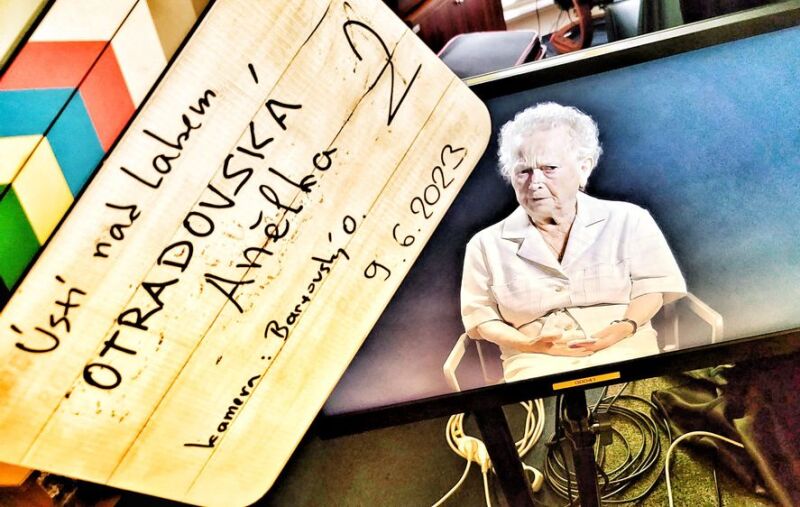 Ústí nad Labem
OTRADOVSKÁ 2
Anělka
kamera: Bartovský O.
9.6.2023